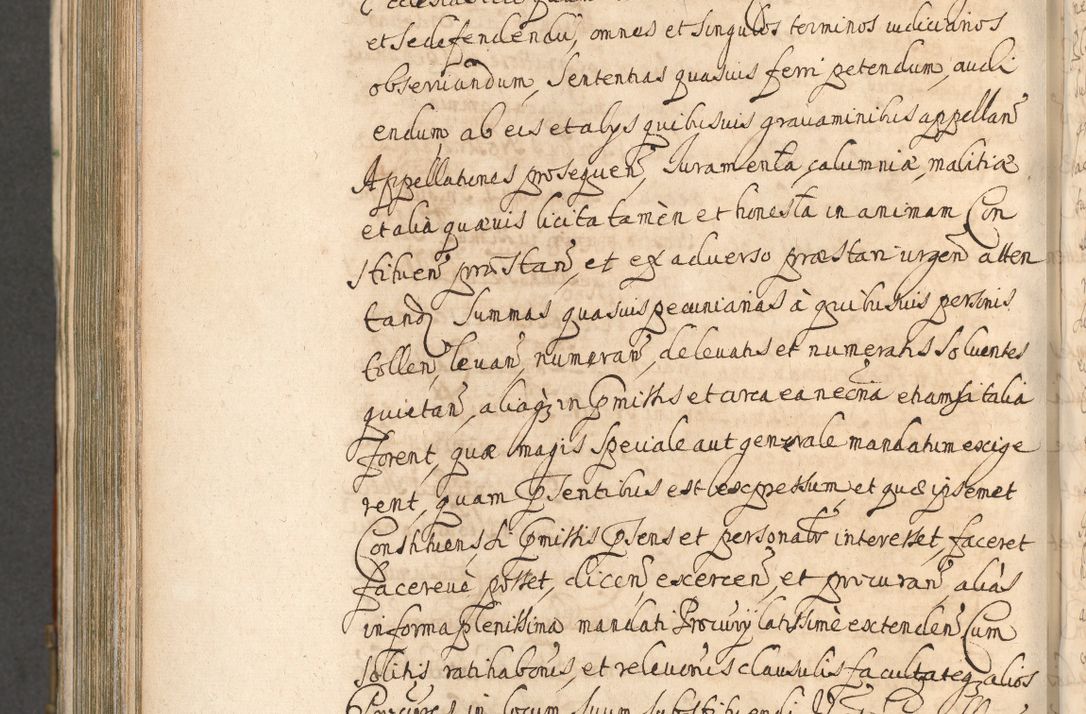 et se defendendi, omnes et singulos terminos iudiciarios
observandum, Sententias quasuis ferri petendum, audi
endum, ab eis et alÿs quibusuis grauaminibus appellan̄
Appellationes prosequen̄, Iuramenta calumniæ, malitiæ
et alia quæuis licita tamèn et honesta in animam Con
stituen̄ præstan̄, et ex aduerso præstari urgen̄ atten
tand Summas quasuis pecuniarias à quibusuis personis
tollen̄, leuan̄, numeran̄, de leuatis et numeratis Soluentes
quietan̄, aliaq3 in p̄missis et circa ea necria etiamsi talia
forent, quæ magis Speciale aut generale mandatum exige
rent, quam p̄sentibus est expressum, et quæ ipsemet
Constituens si p̄missis p̄sens et personalr interesset, faceret
facereuè posset, dicen̄, exercen̄, et procuran̄, aliàs
in forma plenissima mandati Procurÿ latissimè extenden̄ Cum
solitis ratihabonis, et releuonis clausulis facultateq3 alios